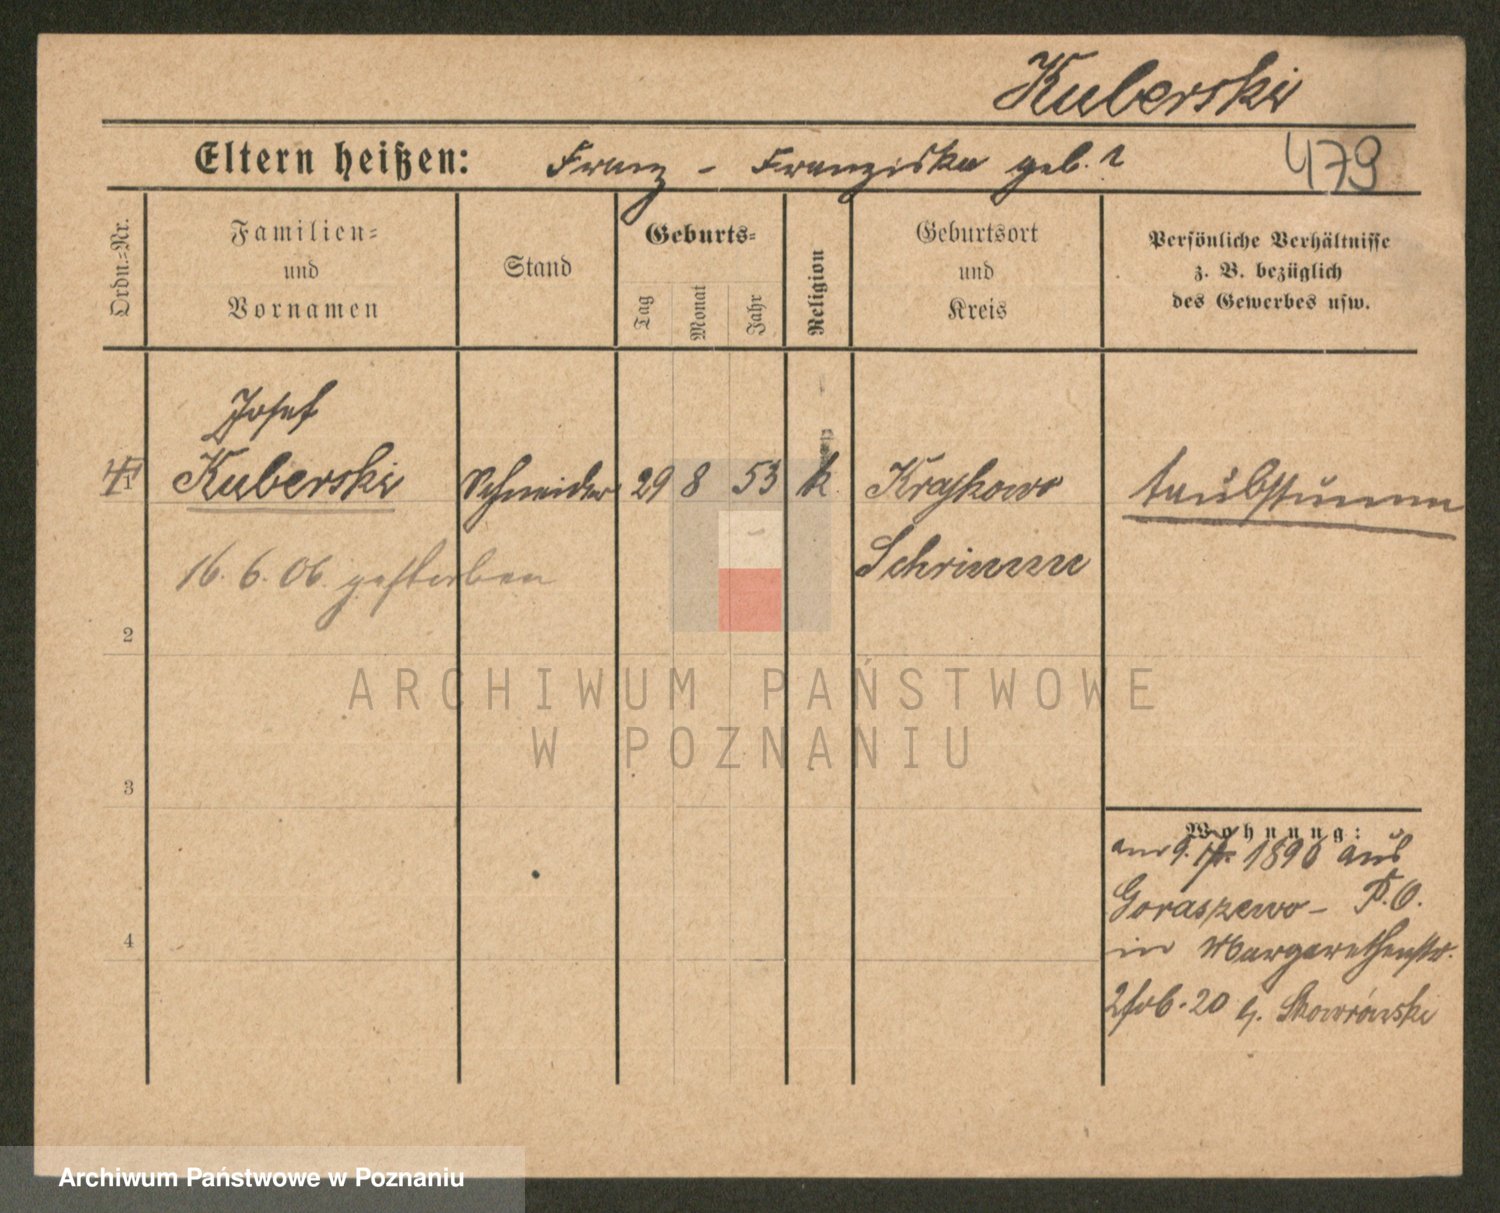 Kuberski
Eltern heißen: Franz - Franziska geb. ?
479
Ordn.-Nr.
Familien-
und
Vornamen
Stand
Geburts-
Tag
Monat
Jahr
Religion
Geburtsort
und
Kreis
Persönliche Verhältnisse
z. B. bezüglich
des Gewerbes usw.
Josef
1 Kuberski Schneider 29 8 53 k. Krajkowo taubstumm
16. 6. 06. gestorben
Schrimm
2
ARCHIWUM PAŃSTWOWE
W POZNANIU
3
4
Wohnung:
am 9. 1896 aus
Goraszewo - P.O.
in Margarethenstr.
20 b. Skowroński
Archiwum Państwowe w Poznaniu